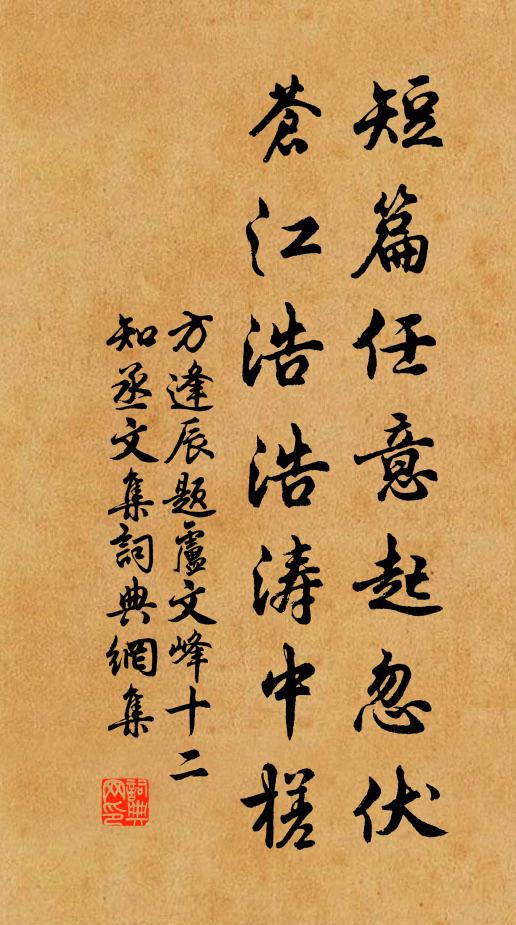 短篇任意起忽伏
蒼江浩浩涛中槎
方逢辰题盧文峰十二
知丞文集詞典網集
詞典网印